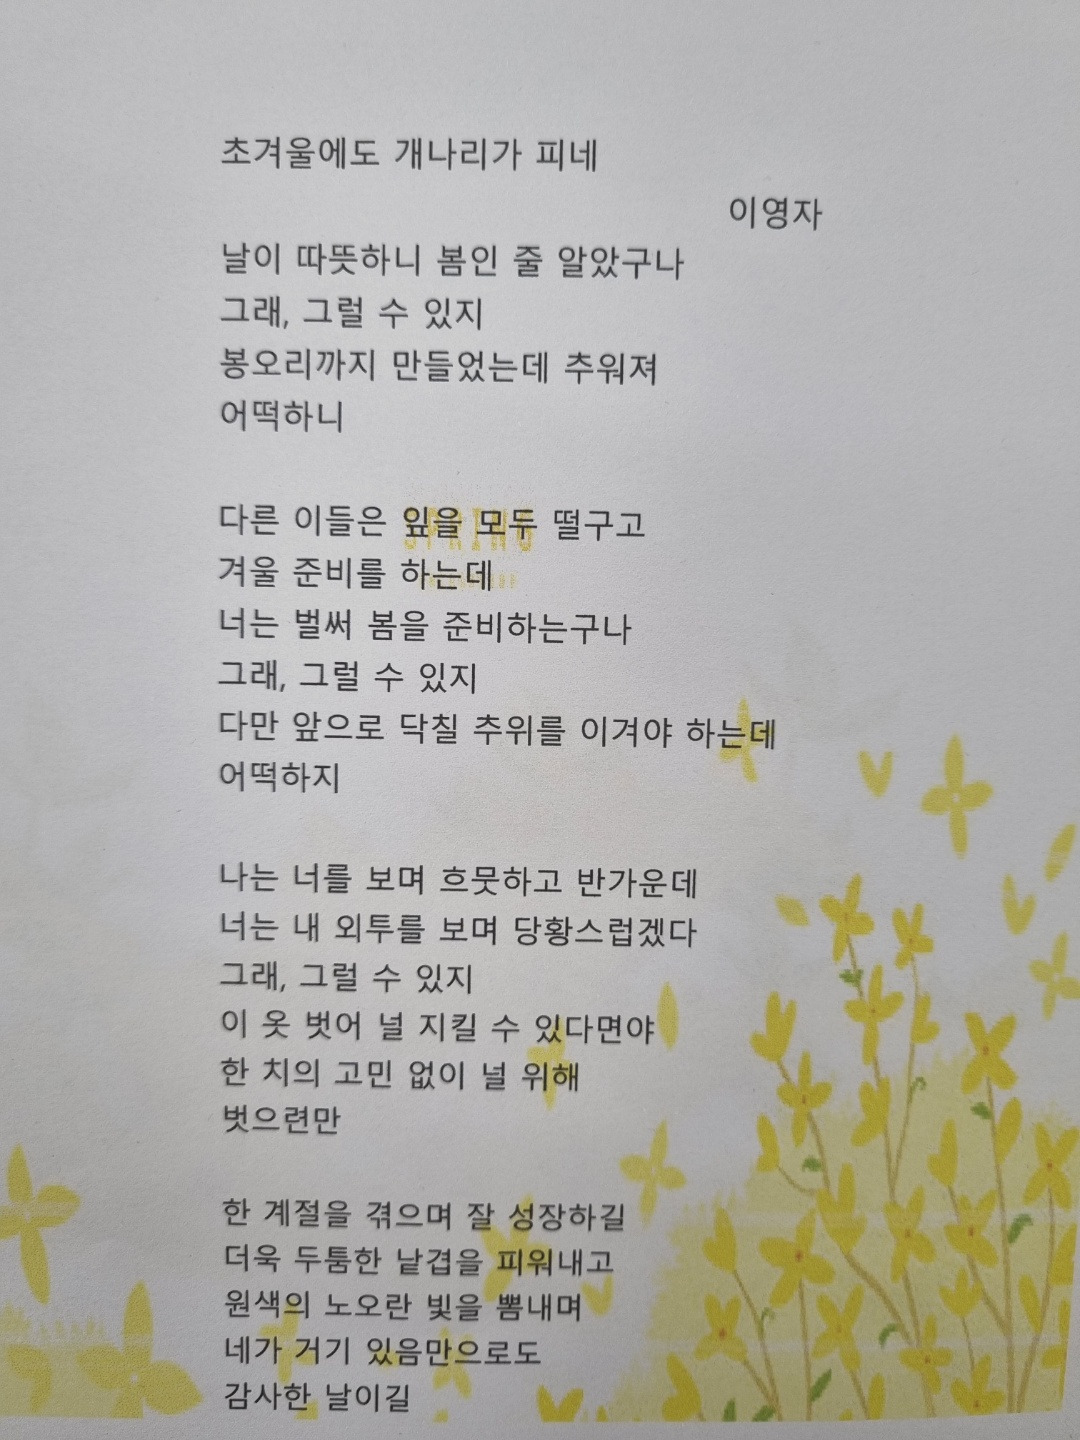 초겨울에도 개나리가 피네
이영자
날이 따뜻하니 봄인 줄 알았구나
그래, 그럴 수 있지
봉오리까지 만들었는데 추워져
어떡하니
다른 이들은 잎을 모두 떨구고
겨울 준비를 하는데
너는 벌써 봄을 준비하는구나
그래, 그럴 수 있지
다만 앞으로 닥칠 추위를 이겨야 하는데
어떡하지
나는 너를 보며 흐뭇하고 반가운데
너는 내 외투를 보며 당황스럽겠다
그래, 그럴 수 있지
이 옷 벗어 널 지킬 수 있다면야
한 치의 고민 없이 널 위해
벗으련만
한 계절을 겪으며 잘 성장하길
더욱 두툼한 낱겹을 피워내고
원색의 노오란 빛을 뽐내며
네가 거기 있음만으로도
감사한 날이길